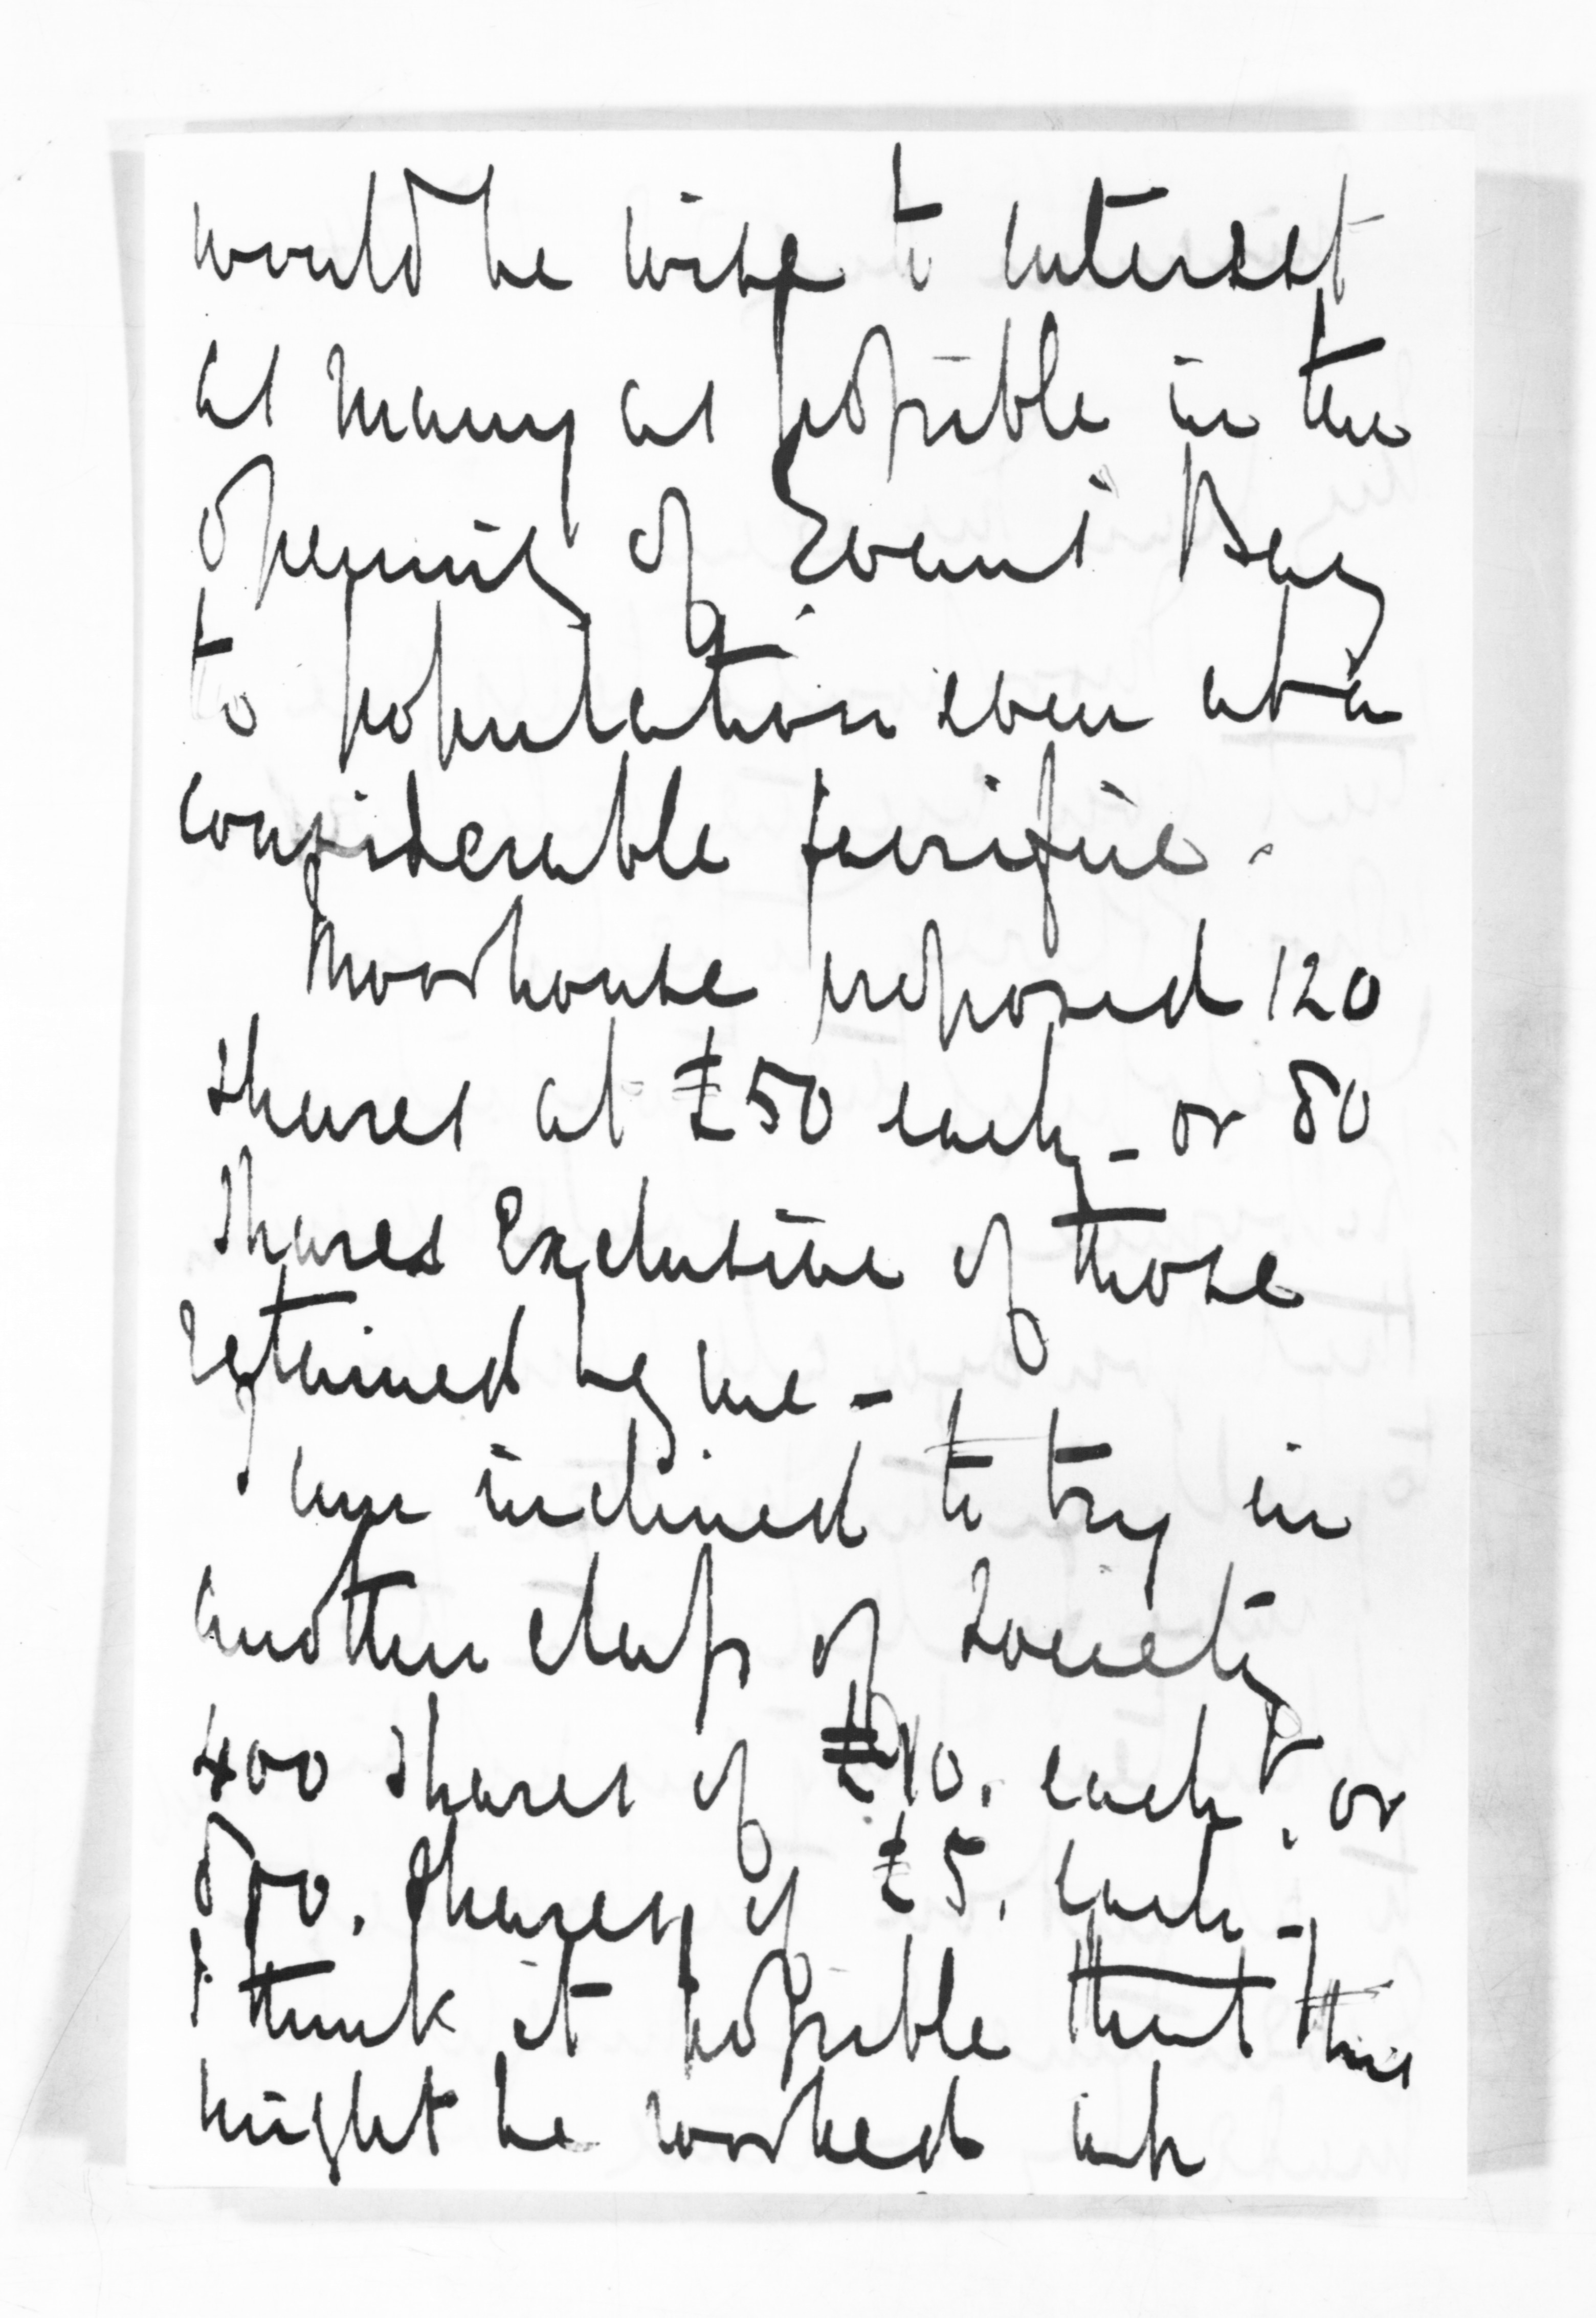 would be wise to interest
as many as possible in the
opening of Evans' Bay
to population even at a
considerable sacrifice.
Moorhouse proposed 120
shares at £50 each - or 80
shares exclusive of those
retained by me -
am inclined to try in
another class of Society
400 shares of £10. each, or
800. shares of £5. each -
I think it possible that this
might be worked up